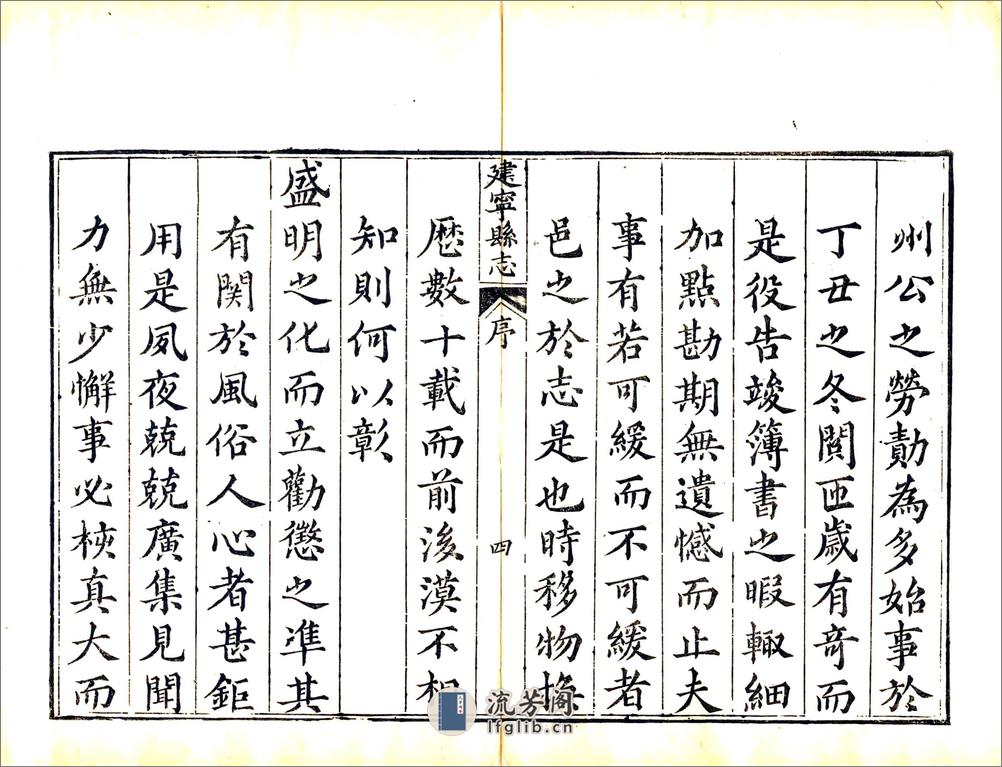 州公之勞勩為多始事於
丁丑之冬閱匝歲有奇而
是役告竣簿書之暇輙細
加點勘期無遺憾而止夫
事有若可緩而不可緩者
邑之於志是也時移物換
建寧縣志
序
四
歷數十載而前後漠不相
知則何以彰
盛明之化而立勸懲之準其
有関於風俗人心者甚鉅
用是夙夜兢兢廣集見聞
力無少懈事必核真大而
流芳阁
lfglib.cn